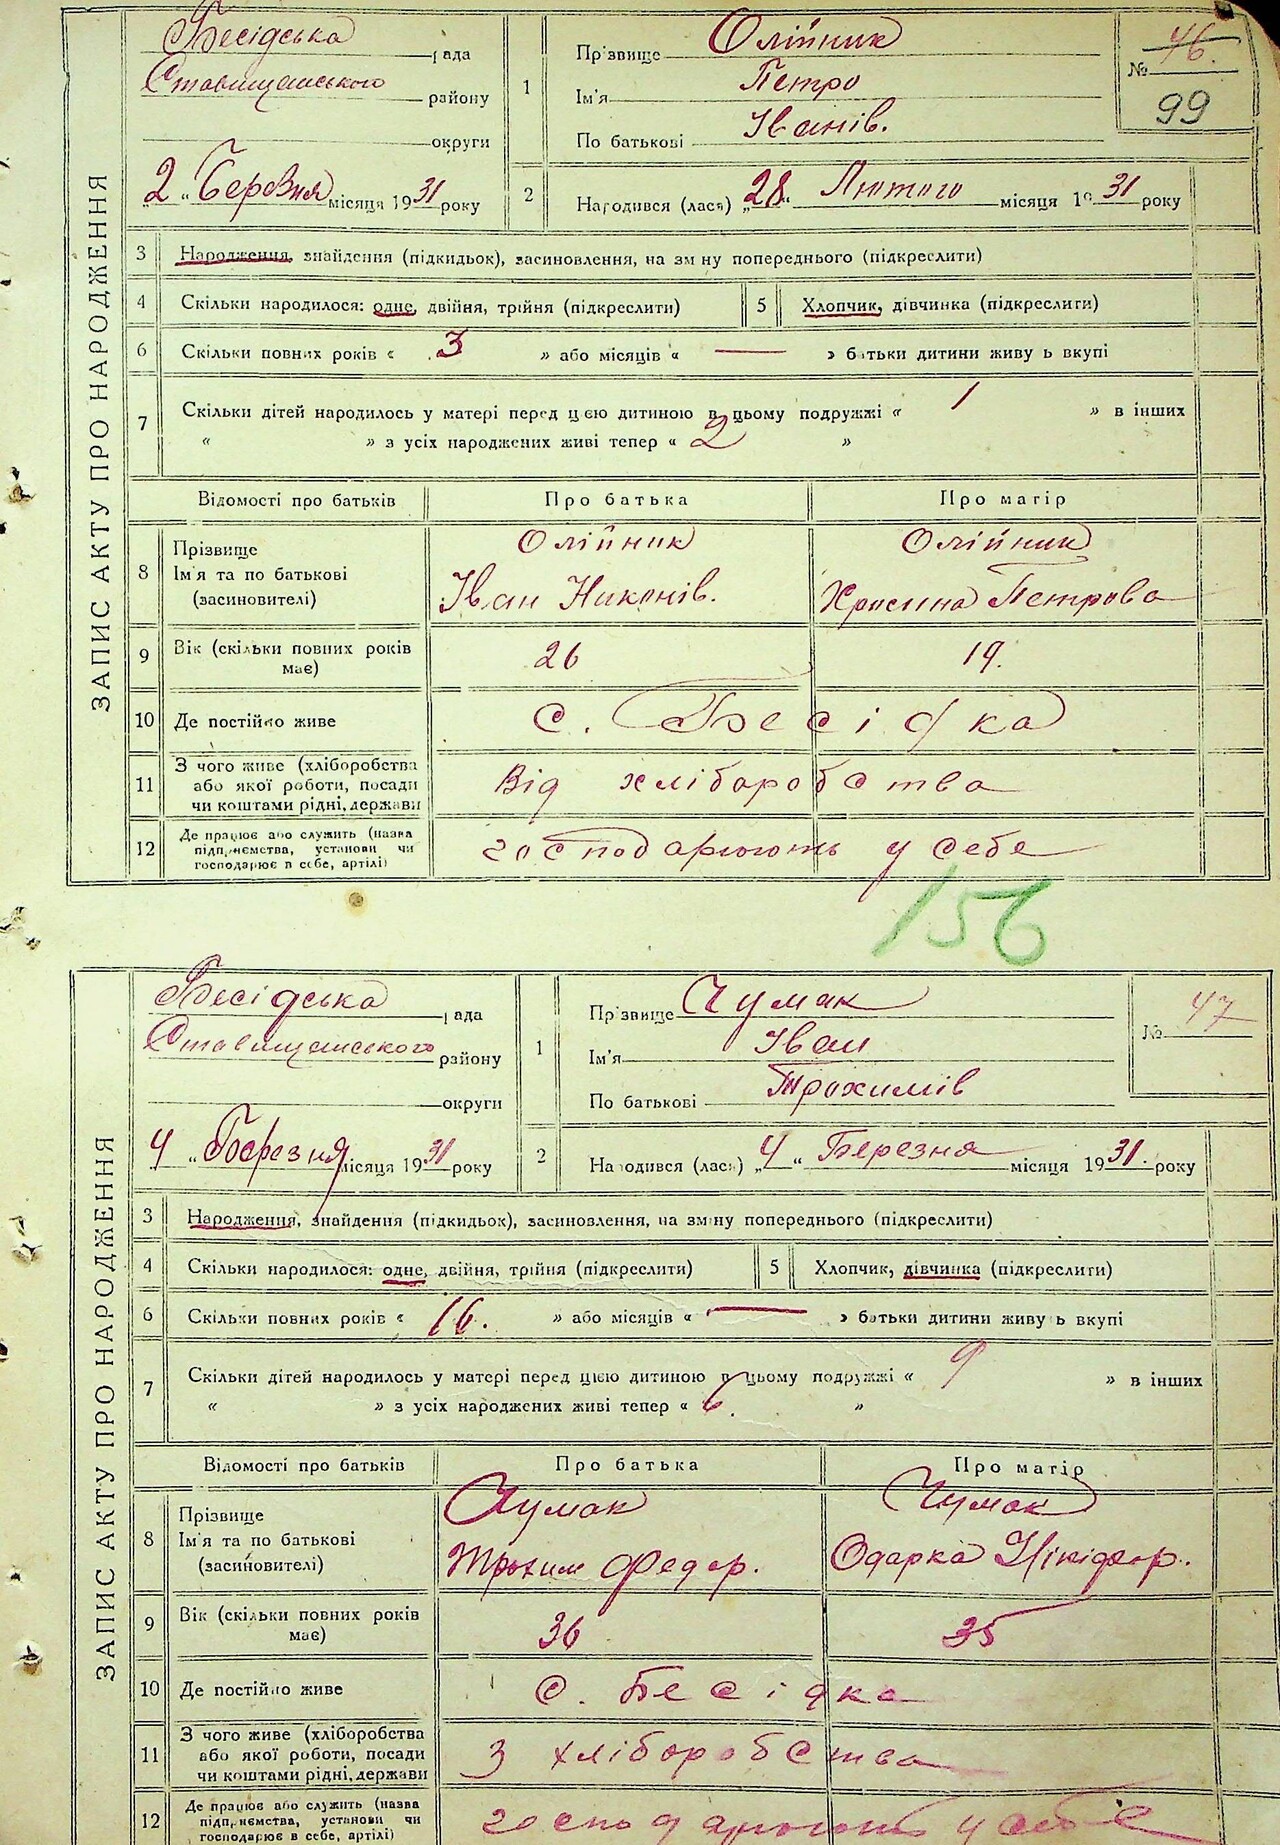 ЗАПИС АКТУ ПРО НАРОДЖЕННЯ
Бесідська рада
Ставищанського району
округи
„2“ Березня місяця 1931 року
1
Прізвище Олійник
Ім'я Петро
По батькові Іванів.
№ 46.
99
2
Народився (лася) „28“ Лютого місяця 1931 року
3 Народження, знайдення (підкидьок), засиновлення, на зміну попереднього (підкреслити)
4 Скільки народилося: одне, двійня, трійня (підкреслити)
5 Хлопчик, дівчинка (підкреслити)
6 Скільки повних років « 3 » або місяців « — » батьки дитини живуть вкупі
7 Скільки дітей народилось у матері перед цією дитиною в цьому подружжі « 1 » в інших
« » з усіх народжених живі тепер « 2 »
Відомості про батьків Про батька Про матір
8 Прізвище Олійник Олійник
Ім'я та по батькові Іван Никонів. Хрисина Петрова
(засиновителі)
9 Вік (скільки повних років має) 26 19.
10 Де постійно живе с. Бесідка
11 З чого живе (хліборобства
або якої роботи, посади Від хліборобства
чи коштами рідні, держави
12 Де працює або служить (назва
підприємства, установи чи господарюють у себе
господарює в себе, артілі)
156
ЗАПИС АКТУ ПРО НАРОДЖЕННЯ
Бесідська рада
Ставищанського району
округи
„4“ Березня місяця 1931 року
1
Прізвище Чумак
Ім'я Іван
По батькові Трохимів
№ 47
2
Народився (лася) „4“ Березня місяця 1931. року
3 Народження, знайдення (підкидьок), засиновлення, на зміну попереднього (підкреслити)
4 Скільки народилося: одне, двійня, трійня (підкреслити)
5 Хлопчик, дівчинка (підкреслити)
6 Скільки повних років « 16. » або місяців « — » батьки дитини живуть вкупі
7 Скільки дітей народилось у матері перед цією дитиною в цьому подружжі « 9 » в інших
« » з усіх народжених живі тепер « 6. »
Відомості про батьків Про батька Про матір
8 Прізвище Чумак Чумак
Ім'я та по батькові Трохим Федор. Одарка Нікіфор.
(засиновителі)
9 Вік (скільки повних років має) 36 35
10 Де постійно живе с. Бесідка
11 З чого живе (хліборобства
або якої роботи, посади З хліборобства
чи коштами рідні, держави
12 Де працює або служить (назва
підприємства, установи чи господарюють у себе
господарює в себе, артілі)